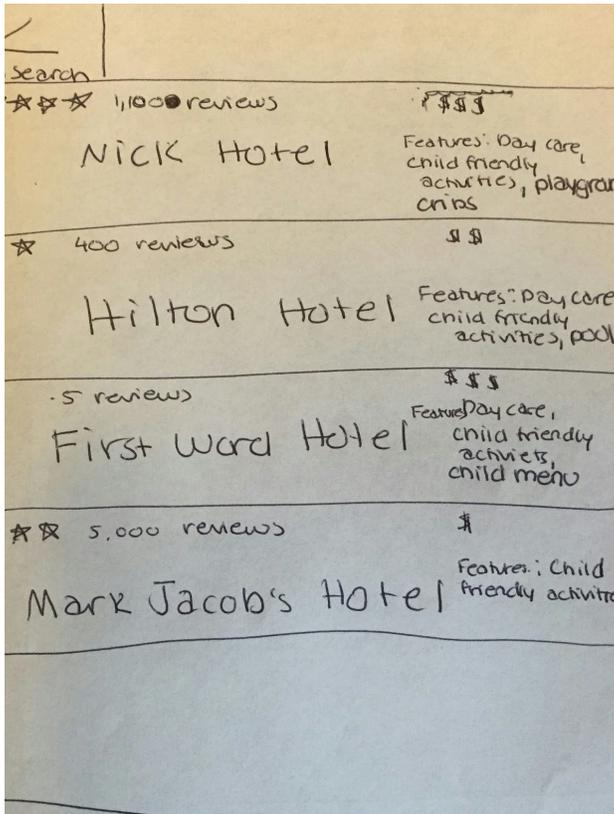 search
☆☆☆ 1,100 reviews $$$
Nick Hotel
Features: Day care,
child friendly
activities, playgrar
cribs
☆ 400 reviews $$
Hilton Hotel
Features: Day care
child friendly
activities, pool
.5 reviews $$$
First Word Hotel
Features Day care,
child friendly
activiets,
child menu
☆☆ 5,000 reviews $
Mark Jacob's Hotel
Features: Child
friendly activitie